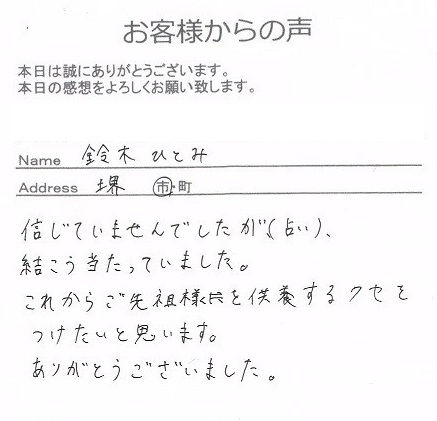 お客様からの声
本日は誠にありがとうございます。
本日の感想をよろしくお願い致します。
Name 鈴木 ひとみ
Address 堺 市・町
信じていませんでしたが、(占い)、
結こう当たっていました。
これからご先祖様を供養するクセを
つけたいと思います。
ありがとうございました。